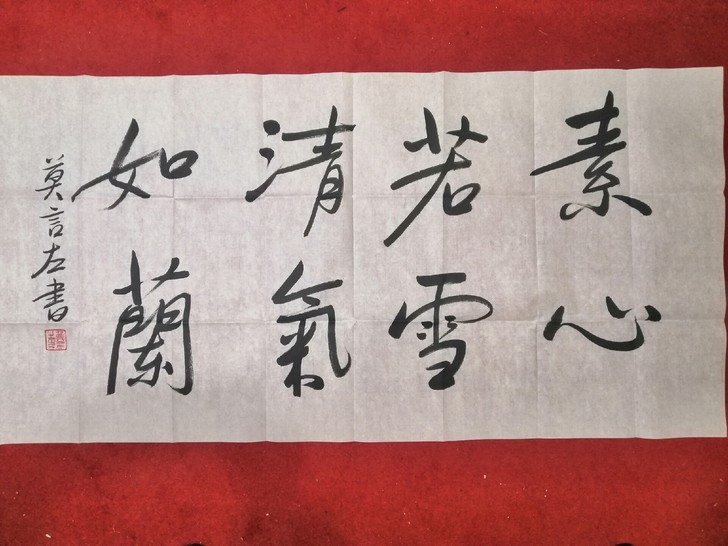 素心
若雪
清氣
如蘭
莫言左書